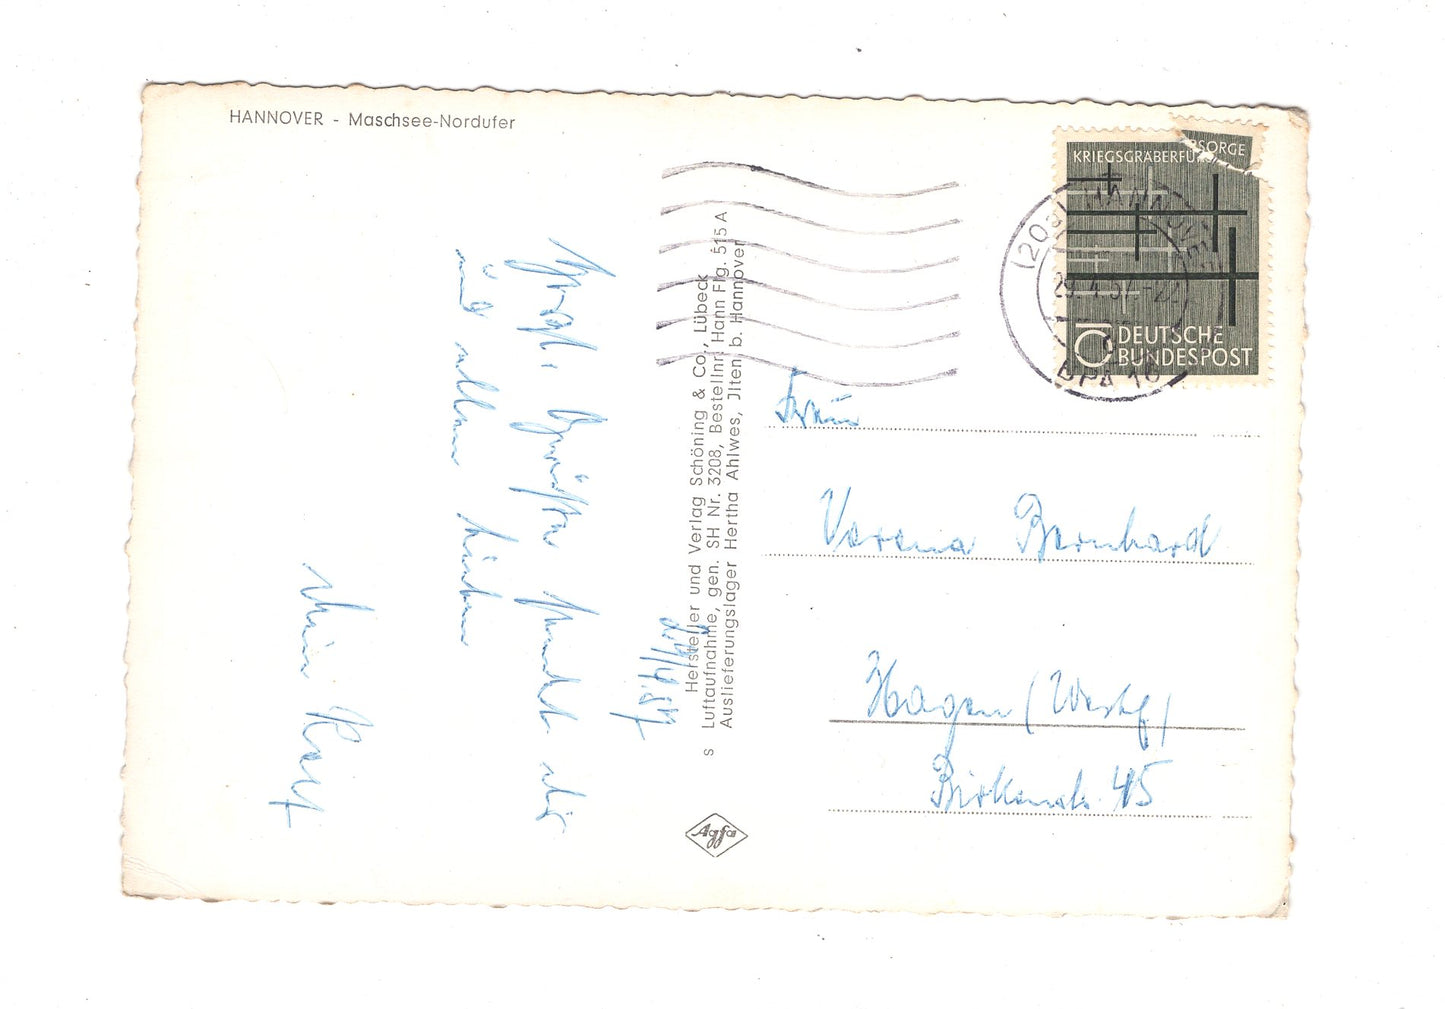 HANNOVER - Maschsee-Nordufer
29/4.57
Herzl. Grüße sendet dir
und allen lieben
dein Karl
s
Hersteller und Verlag Schöning & Co., Lübeck
Luftaufnahme, gen. SH Nr. 3208, BestellNr. Hann Flg. 515 A
Auslieferungslager Hertha Ahlwes, Jlten b. Hannover
Agfa
KRIEGSGRÄBERFÜRSORGE
10
DEUTSCHE
BUNDESPOST
(20a) HANNOVER
29.4.57.-22
BPA 16
Frau
Verena Bernhard
Hagen (Westf)
Birkenstr. 45